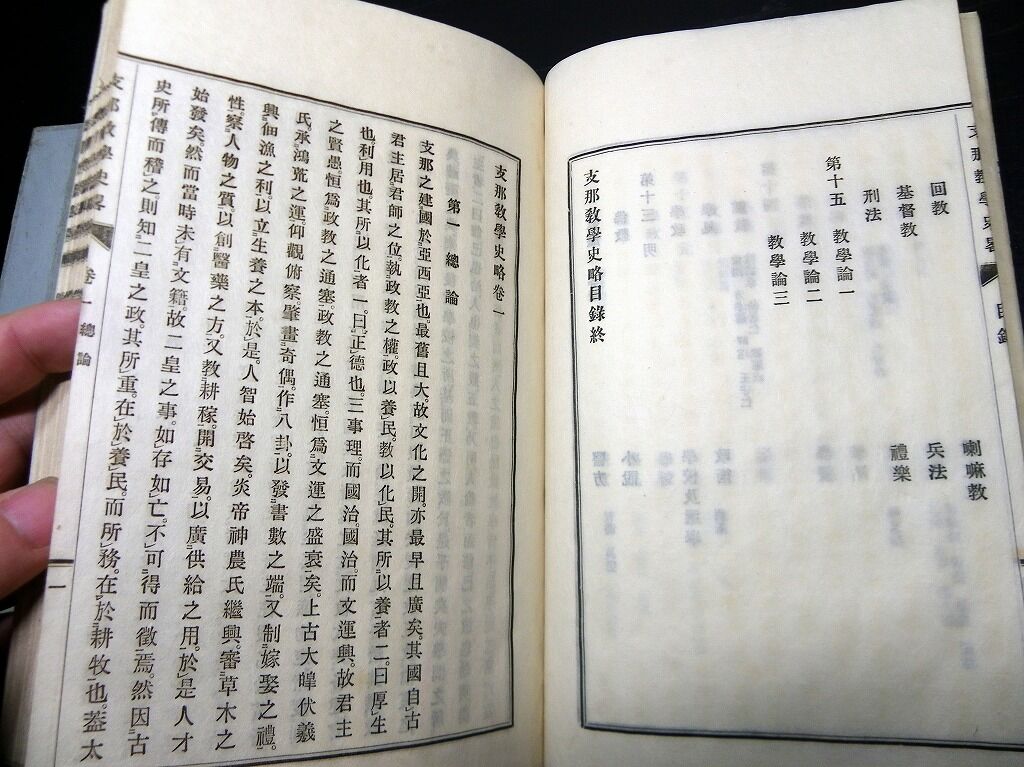 支那教學史畧
目錄
回教
喇嘛教
基督教
兵法
刑法
禮樂
第十五
教學論一
教學論二
教學論三
支那教學史略目錄終
支那教學史略卷一
第一 總論
支那之建國於亞西亞也。最舊且大。故文化之開。亦最早且廣矣。其國自古
君主居君師之位。執政教之權。政以養民。教以化民。其所以養者二。曰厚生
也。利用也。其所以化者一。曰正德也。三事理。而國治。國治。而文運興。故君主
之賢愚。恒爲政教之通塞。政教之通塞。恒爲文運之盛衰矣。上古大皥伏羲
氏。承鴻荒之運。仰觀俯察。肇畫奇偶。作八卦。以發書數之端。又制嫁娶之禮。
興佃漁之利。以立生養之本。於是。人智始啓矣。炎帝神農氏繼興。審草木之
性。察人物之質。以創醫藥之方。又教耕稼。開交易。以廣供給之用。於是人才
始發矣。然而當時未有文籍。故二皇之事。如存如亡。不可得而徵焉。然因古
史所傳而稽之。則知二皇之政。其所重。在於養民。而所務。在於耕牧也。蓋太
支那教學史畧
卷一 總論
一